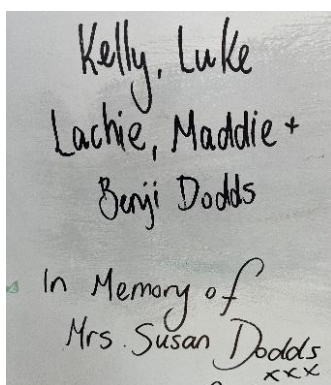 Kelly, Luke
Lachie, Maddie +
Benji Dodds
In Memory of
Mrs. Susan Dodds
xxx